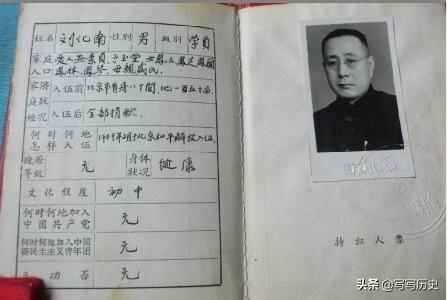 姓名 刘化南 性别 男 级别 学员
家庭 爱人
人口 母亲
家济
庭状 入伍前 北京市有房八十间,地一百五十亩
经况 入伍后 全部捐献
何时何地
怎样入伍 1949年 月北京和平解放入伍
残废
等级 无 身体
状况 健康
文化程度 初中
何时何地加入
中国共产党 无
何时何地加入中国
新民主主义青年团 无
立功否 无
持证人像
头条 @写写历史